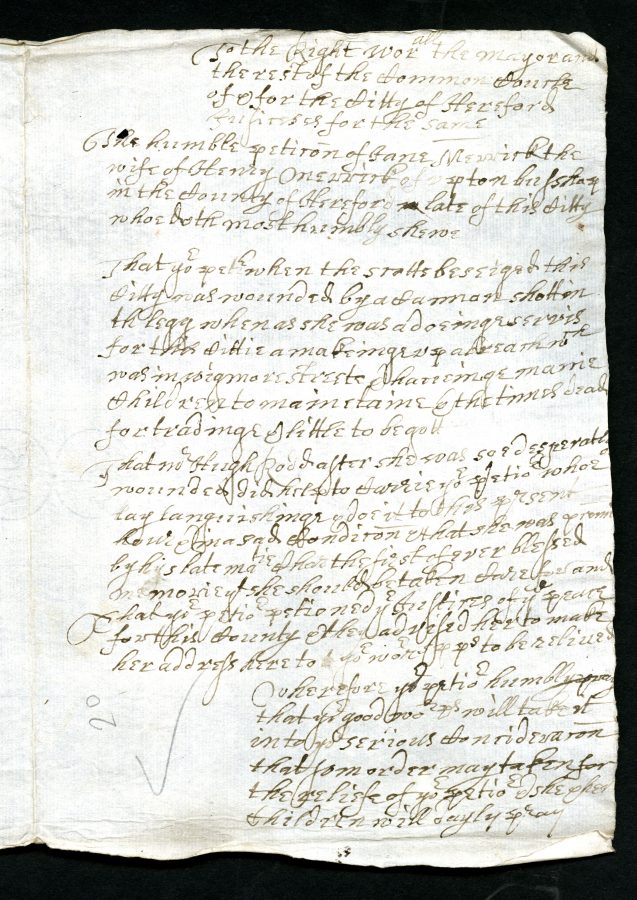 To the Right Wor^all the mayor and
the rest of the Common Councle
of & for the Citty of Hereford
Justiceses for the same
The humble peticōn of Jane Merrick the
wife of Henry Merrick of upton bushop
in the County of Hereford late of this Citty
whoe doth most humbly shewe
That yo^r pet^r when the scotts beseiged this
Citty was wounded by a Cannon shott in
th legg when as she was a doeinge servis
for this Cittie a makeinge up a breach w^ch
was in wigmore streete & haveinge manie
Children to maintaine & the times dead
for tradinge & little to be gott
That m^r Hugh Rodd after she was soe desperatly
wounded did help to Carrie yo^r petic^r whoe
lay languishinge & doe it to this present
howre in a sad Condicōn & that she was promi
by his late ma^tie Charles the first of ever blessed
memorie y^t she should be taken Care for and
That yo^r petic^r petioned y^e Justices of y^e peace
for this County & they advised her to make
her address here to yo^r wor^pps to be relived
Wherefore yo^r petic^r humbly pray
that yo^r good wor^ps will take it
into yo^r serious Concideracōn
that som order may taken for
the reliefe of yo^r petic^r & she & her
Children will dayly pray
2°